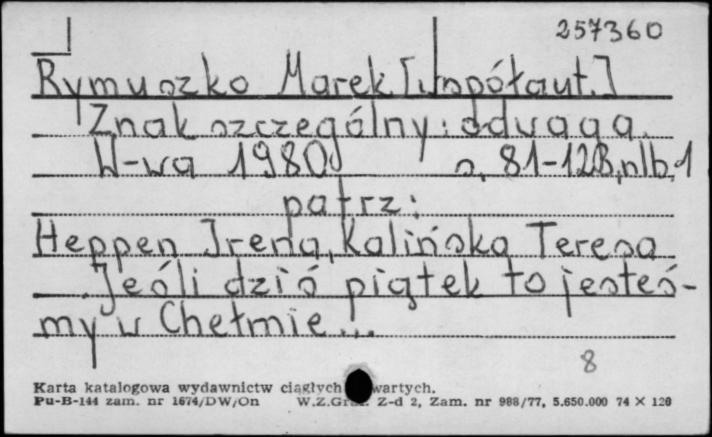 257360
Rymuszko Marek [współaut.]
Znak szczególny: odwaga.
W-wa 1980 s. 81-128, nlb. 1
patrz:
Heppen Irena, Kalińska Teresa
Jeśli dziś piątek to jesteś-
my w Chełmie...
8
Karta katalogowa wydawnictw ciągłych wartych.
Pu-B-144 zam. nr 1674/DW/On W.Z.Graf. Z-d 2, Zam. nr 988/77, 5.650.000 74 × 120